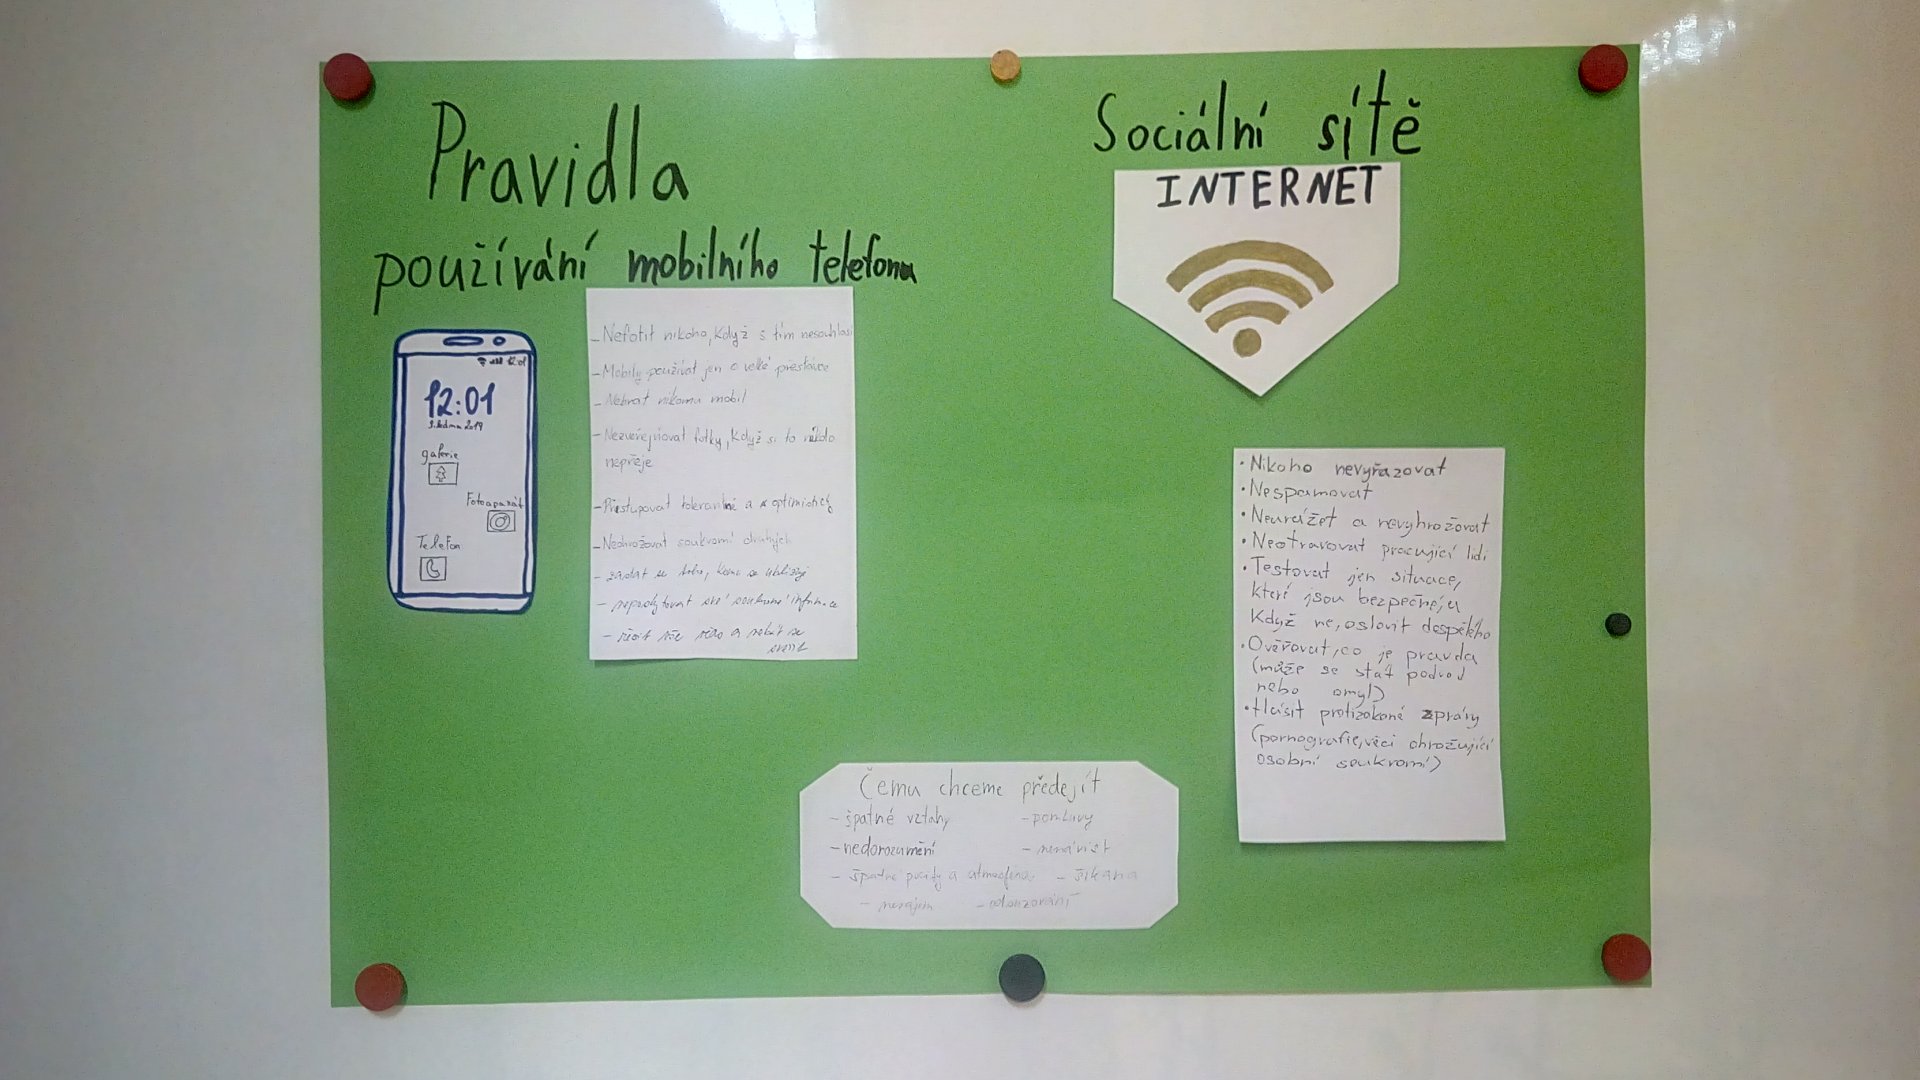 Pravidla
používání mobilního telefonu
12:01
12:01
9. ledna 2019
galerie
Fotoaparát
Telefon
- Nefotit nikoho, když s tím nesouhlasí
- Mobily používat jen o velké přestávce
- Nebrat nikomu mobil
- Nezveřejňovat fotky, když si to nikdo
nepřeje
- Přistupovat tolerantně a optimisticky
- Neohrožovat soukromí druhých
- zastat se toho, komu se ubližuje
- neposkytovat své soukromé informace
- řešit vše a nebát se
Sociální sítě
INTERNET
• Nikoho nevyřazovat
• Nespamovat
• Neurážet a nevyhrožovat
• Neotravovat pracující lidi
• Testovat jen situace,
které jsou bezpečné, a
když ne, oslovit dospělého
• Ověřovat, co je pravda
(může se stát podvod
nebo omyl)
• Hlásit protizákoné zprávy
(pornografie, věci ohrožující
osobní soukromí)
Čemu chceme předejít
- špatné vztahy - pomluvy
- nedorozumění - nenávist
- špatné pocity a atmosféra - šikana
- nezájem - odsuzování